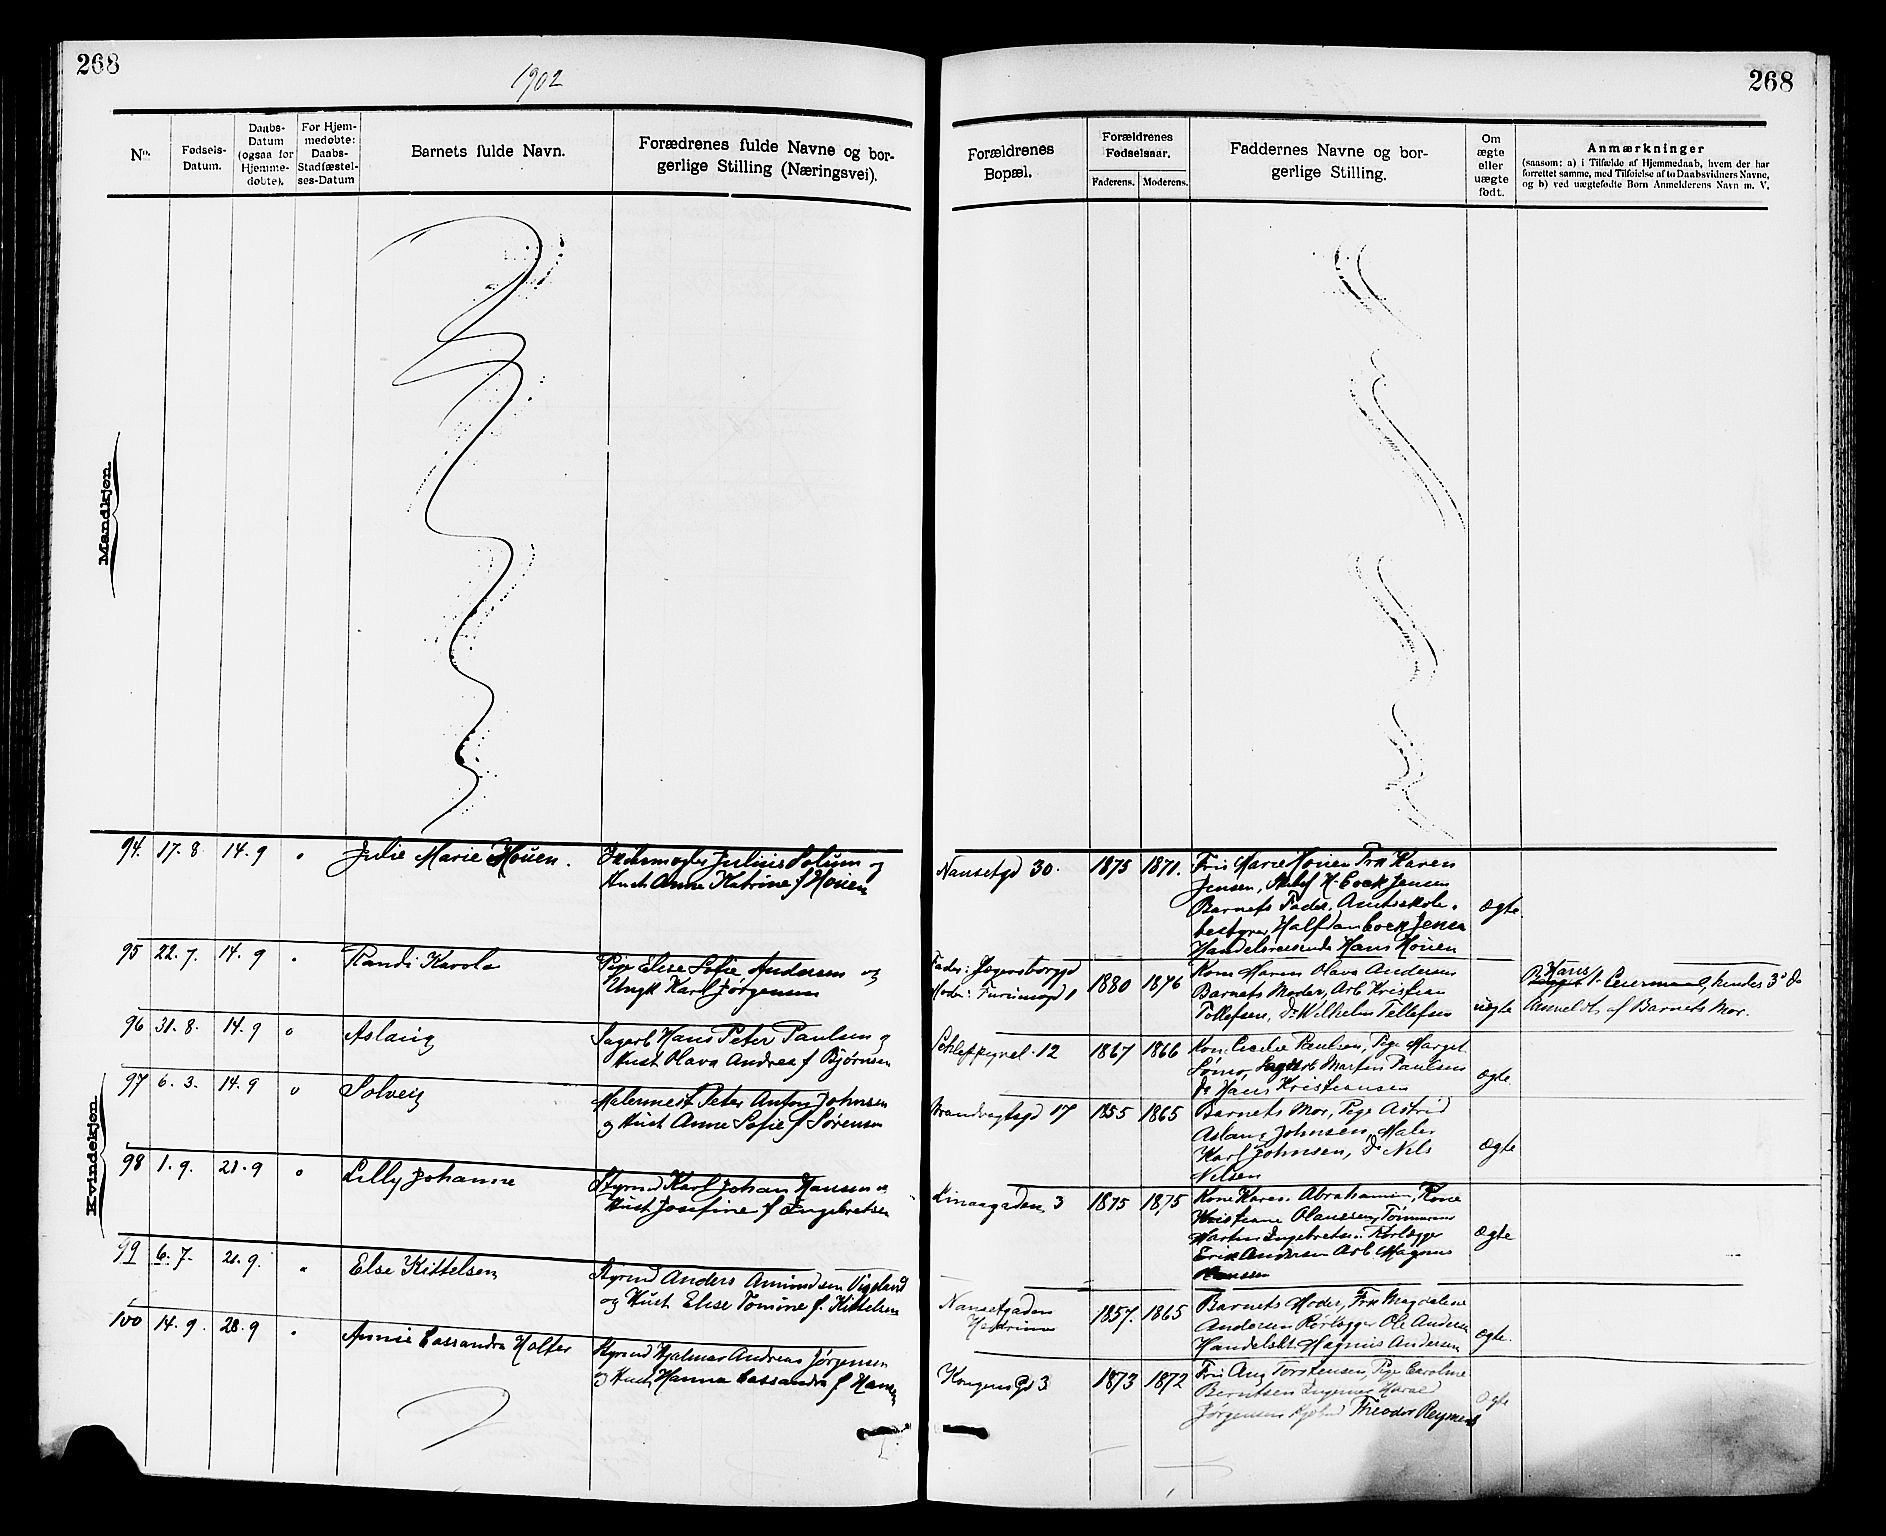 268
1902
268
No.
Fødsels-
Datum.
Daabs-
Datum
(ogsaa for
Hjemme-
døbte).
For Hjem-
medøbte:
Daabs-
Stadfæstel-
ses-Datum
Barnets fulde Navn.
Forædrenes fulde Navne og bor-
gerlige Stilling (Næringsvei).
Forældrenes
Bopæl.
Forældrenes
Fødselsaar.
Faderens. Moderens.
Faddernes Navne og bor-
gerlige Stilling.
Om
ægte
eller
uægte
født.
Anmærkninger
(saasom: a) i Tilfælde af Hjemmedaab, hvem der har
forrettet samme, med Tilføielse af to Daabsvidners Navne,
og b) ved uægtefødte Børn Anmelderens Navn m. V.
Mandkjøn.
Kvindekjøn.
94. 17. 8 14. 9 Julie Marie Houen.
Julius Solum og
Hust Anna Katrine f Houen
Nansetgd 30. 1875 1871.
Fru Marie Houen Frk Karen
Jensen, H. Cock Jensen
Barnets Fader, Amtsskole-
bestyrer Halfdan Cock Jensen
Handelsreisende Hans Houen
ægte
95 22. 7. 14. 9 Randi Karola
Pige Elise Sofie Andersen og
Ungk Karl Jørgensen
Fader: Jegersborggd
Moder: Furumogd 1
1880 1876
Kone Maren Olava Andersen
Barnets Moder, Arb Kristian
Tollefsen, Do Wilhelm Tellefsen
uægte
Hans
hendes 3d Do
Anmeldt af Barnets Mor.
96 31. 8. 14. 9 Aslaug
Sagarb Hans Peter Paulsen og
Hust Olava Andrea f Bjørnsen
12 1867 1866
Kone Cecilie Paulsen, Pige Marget
Sagarb Martin Paulsen
Do Hans Kristiansen
ægte
97 6. 3. 14. 9 Solveig
Malermest Peter Anton Johnsen
og Hust Anne Sofie f Sørensen
Brandvagtsgd 17 1855 1865
Barnets Mor, Pige Astrid
Aslaug Johnsen, Maler
Karl Johnsen, Do Nils
Nilsen
ægte
98 1. 9. 21. 9 Lilly Johanne
Styrmd Karl Johan Hansen og
Hust Josefine f Ingebretsen
Kinagaden 3 1875 1875
Kone Karen Abrahamsen, Kone
Kristiane Olaussen, Tømmerm
Martin Ingebretsen Rørlægger
Erik Andersen Arb Magnus
Hanssen
ægte
99 6. 7. 21. 9. Else Kittelsen
Styrmd Anders Amundsen Vigeland
og Hust Elise Tomine f. Kittelsen
Nansetgaden
1857. 1865
Barnets Moder, Frk Magdalene
Andersen Rørlægger Ole Andersen
Handelsbt. Magnus Andersen
ægte.
100 14. 9. 28. 9 Annie Cassandra Holter
Styrmd Hjalmar Andreas Jørgensen
og Hust Hanna Cassandra f Hansen
Kongensgd 3 1873 1872
Fru Aug Torstensen, Pige Caroline
Berntsen Harald
Jørgensen Theodor Reymert
ægte